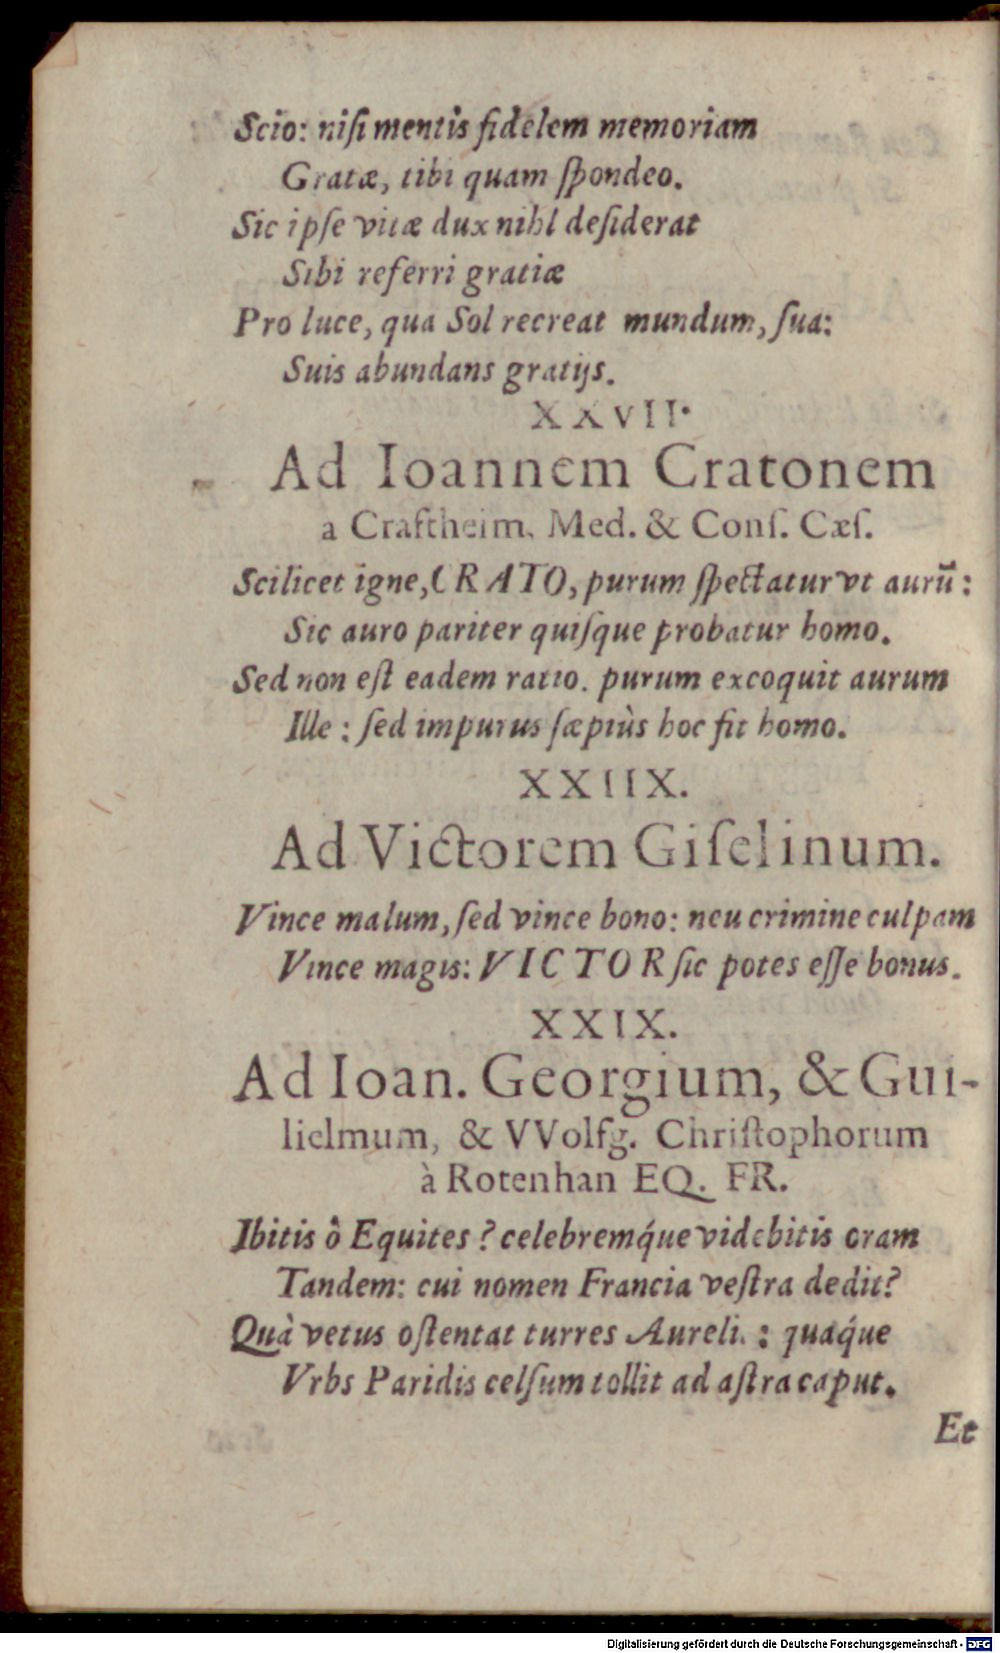 Scio: niſi mentis fidelem memoriam
Gratæ, tibi quam ſpondeo.
Sic ipſe vitæ dux nihl deſiderat
Sibi referri gratiæ
Pro luce, qua Sol recreat mundum, ſua:
Suis abundans gratijs.
XXVII.
Ad Ioannem Cratonem
a Craftheim. Med. & Conſ. Cæſ.
Scilicet igne, CRATO, purum ſpectatur vt aurū:
Sic auro pariter quiſque probatur homo.
Sed non eſt eadem ratio. purum excoquit aurum
Ille: ſed impurus ſæpiùs hoc fit homo.
XXIIX.
Ad Victorem Giſelinum.
Vince malum, ſed vince bono: neu crimine culpam
Vince magis: VICTOR ſic potes eſſe bonus.
XXIX.
Ad Ioan. Georgium, & Gui-
lielmum, & VVolfg. Chriſtophorum
à Rotenhan EQ. FR.
Ibitis ô Equites? celebremq́ue videbitis oram
Tandem: cui nomen Francia veſtra dedit?
Quà vetus oſtentat turres Aureli.: quaq́ue
Vrbs Paridis celſum tollit ad aſtra caput.
Et
Digitalisierung gefördert durch die Deutsche Forschungsgemeinschaft - DFG